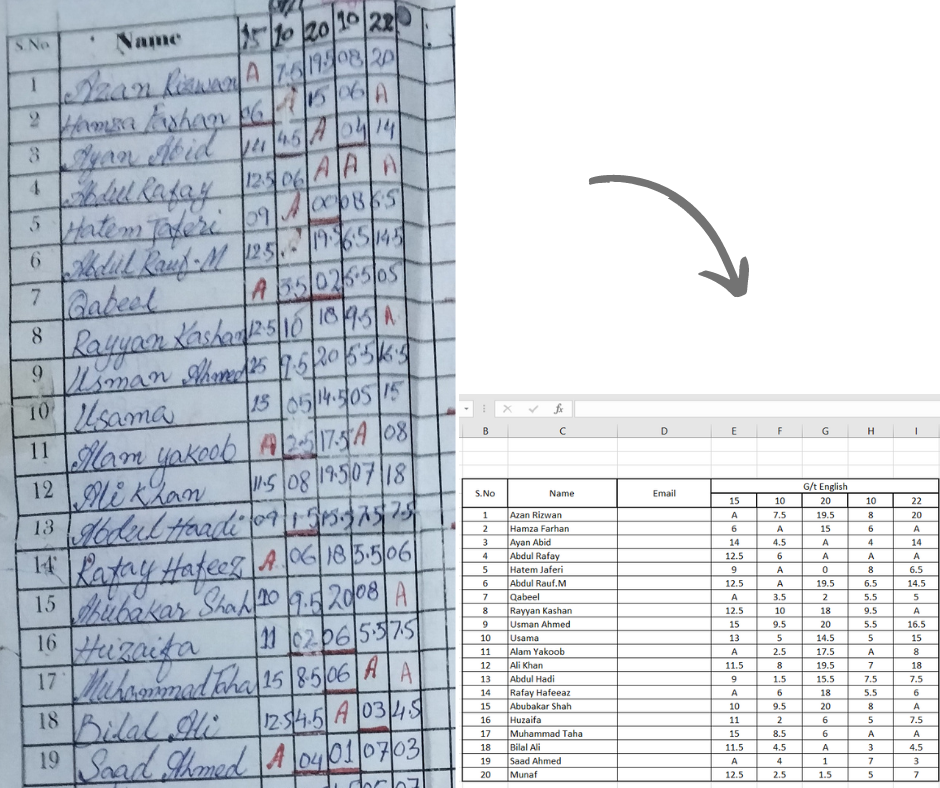 S.No Name 15 10 20 10 22
1 Azan Rizwan A 7.5 19.5 08 20
2 Hamza Farhan 06 A 15 06 A
3 Ayan Abid 14 4.5 A 04 14
4 Abdul Rafay 12.5 06 A A A
5 Hatem Jaferi 09 A 00 08 6.5
6 Abdul Rauf.M 12.5 19.5 6.5 14.5
7 Qabeel A 3.5 02 5.5 05
8 Rayyan Kashan 12.5 10 18 9.5 A
9 Usman Ahmed 15 9.5 20 5.5 16.5
10 Usama 13 05 14.5 05 15
11 Alam yakoob A 2.5 17.5 A 08
12 Ali Khan 11.5 08 19.5 07 18
13 Abdul Haadi 09 1.5 15.5 7.5 7.5
14 Rafay Hafeez A 06 18 5.5 06
15 Abubakar Shah 10 9.5 20 08 A
16 Huzaifa 11 02 06 5.5 7.5
17 Muhammad Taha 15 8.5 06 A A
18 Bilal Ali 12.5 4.5 A 03 4.5
19 Saad Ahmed A 04 01 07 03
fx
B C D E F G H I
S.No Name Email G/t English
15 10 20 10 22
1 Azan Rizwan A 7.5 19.5 8 20
2 Hamza Farhan 6 A 15 6 A
3 Ayan Abid 14 4.5 A 4 14
4 Abdul Rafay 12.5 6 A A A
5 Hatem Jaferi 9 A 0 8 6.5
6 Abdul Rauf.M 12.5 A 19.5 6.5 14.5
7 Qabeel A 3.5 2 5.5 5
8 Rayyan Kashan 12.5 10 18 9.5 A
9 Usman Ahmed 15 9.5 20 5.5 16.5
10 Usama 13 5 14.5 5 15
11 Alam Yakoob A 2.5 17.5 A 8
12 Ali Khan 11.5 8 19.5 7 18
13 Abdul Hadi 9 1.5 15.5 7.5 7.5
14 Rafay Hafeeaz A 6 18 5.5 6
15 Abubakar Shah 10 9.5 20 8 A
16 Huzaifa 11 2 6 5 7.5
17 Muhammad Taha 15 8.5 6 A A
18 Bilal Ali 11.5 4.5 A 3 4.5
19 Saad Ahmed A 4 1 7 3
20 Munaf 12.5 2.5 1.5 5 7